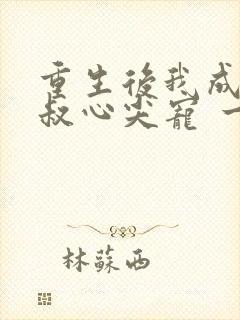 重生後我成
叔心尖寵
林蘇西